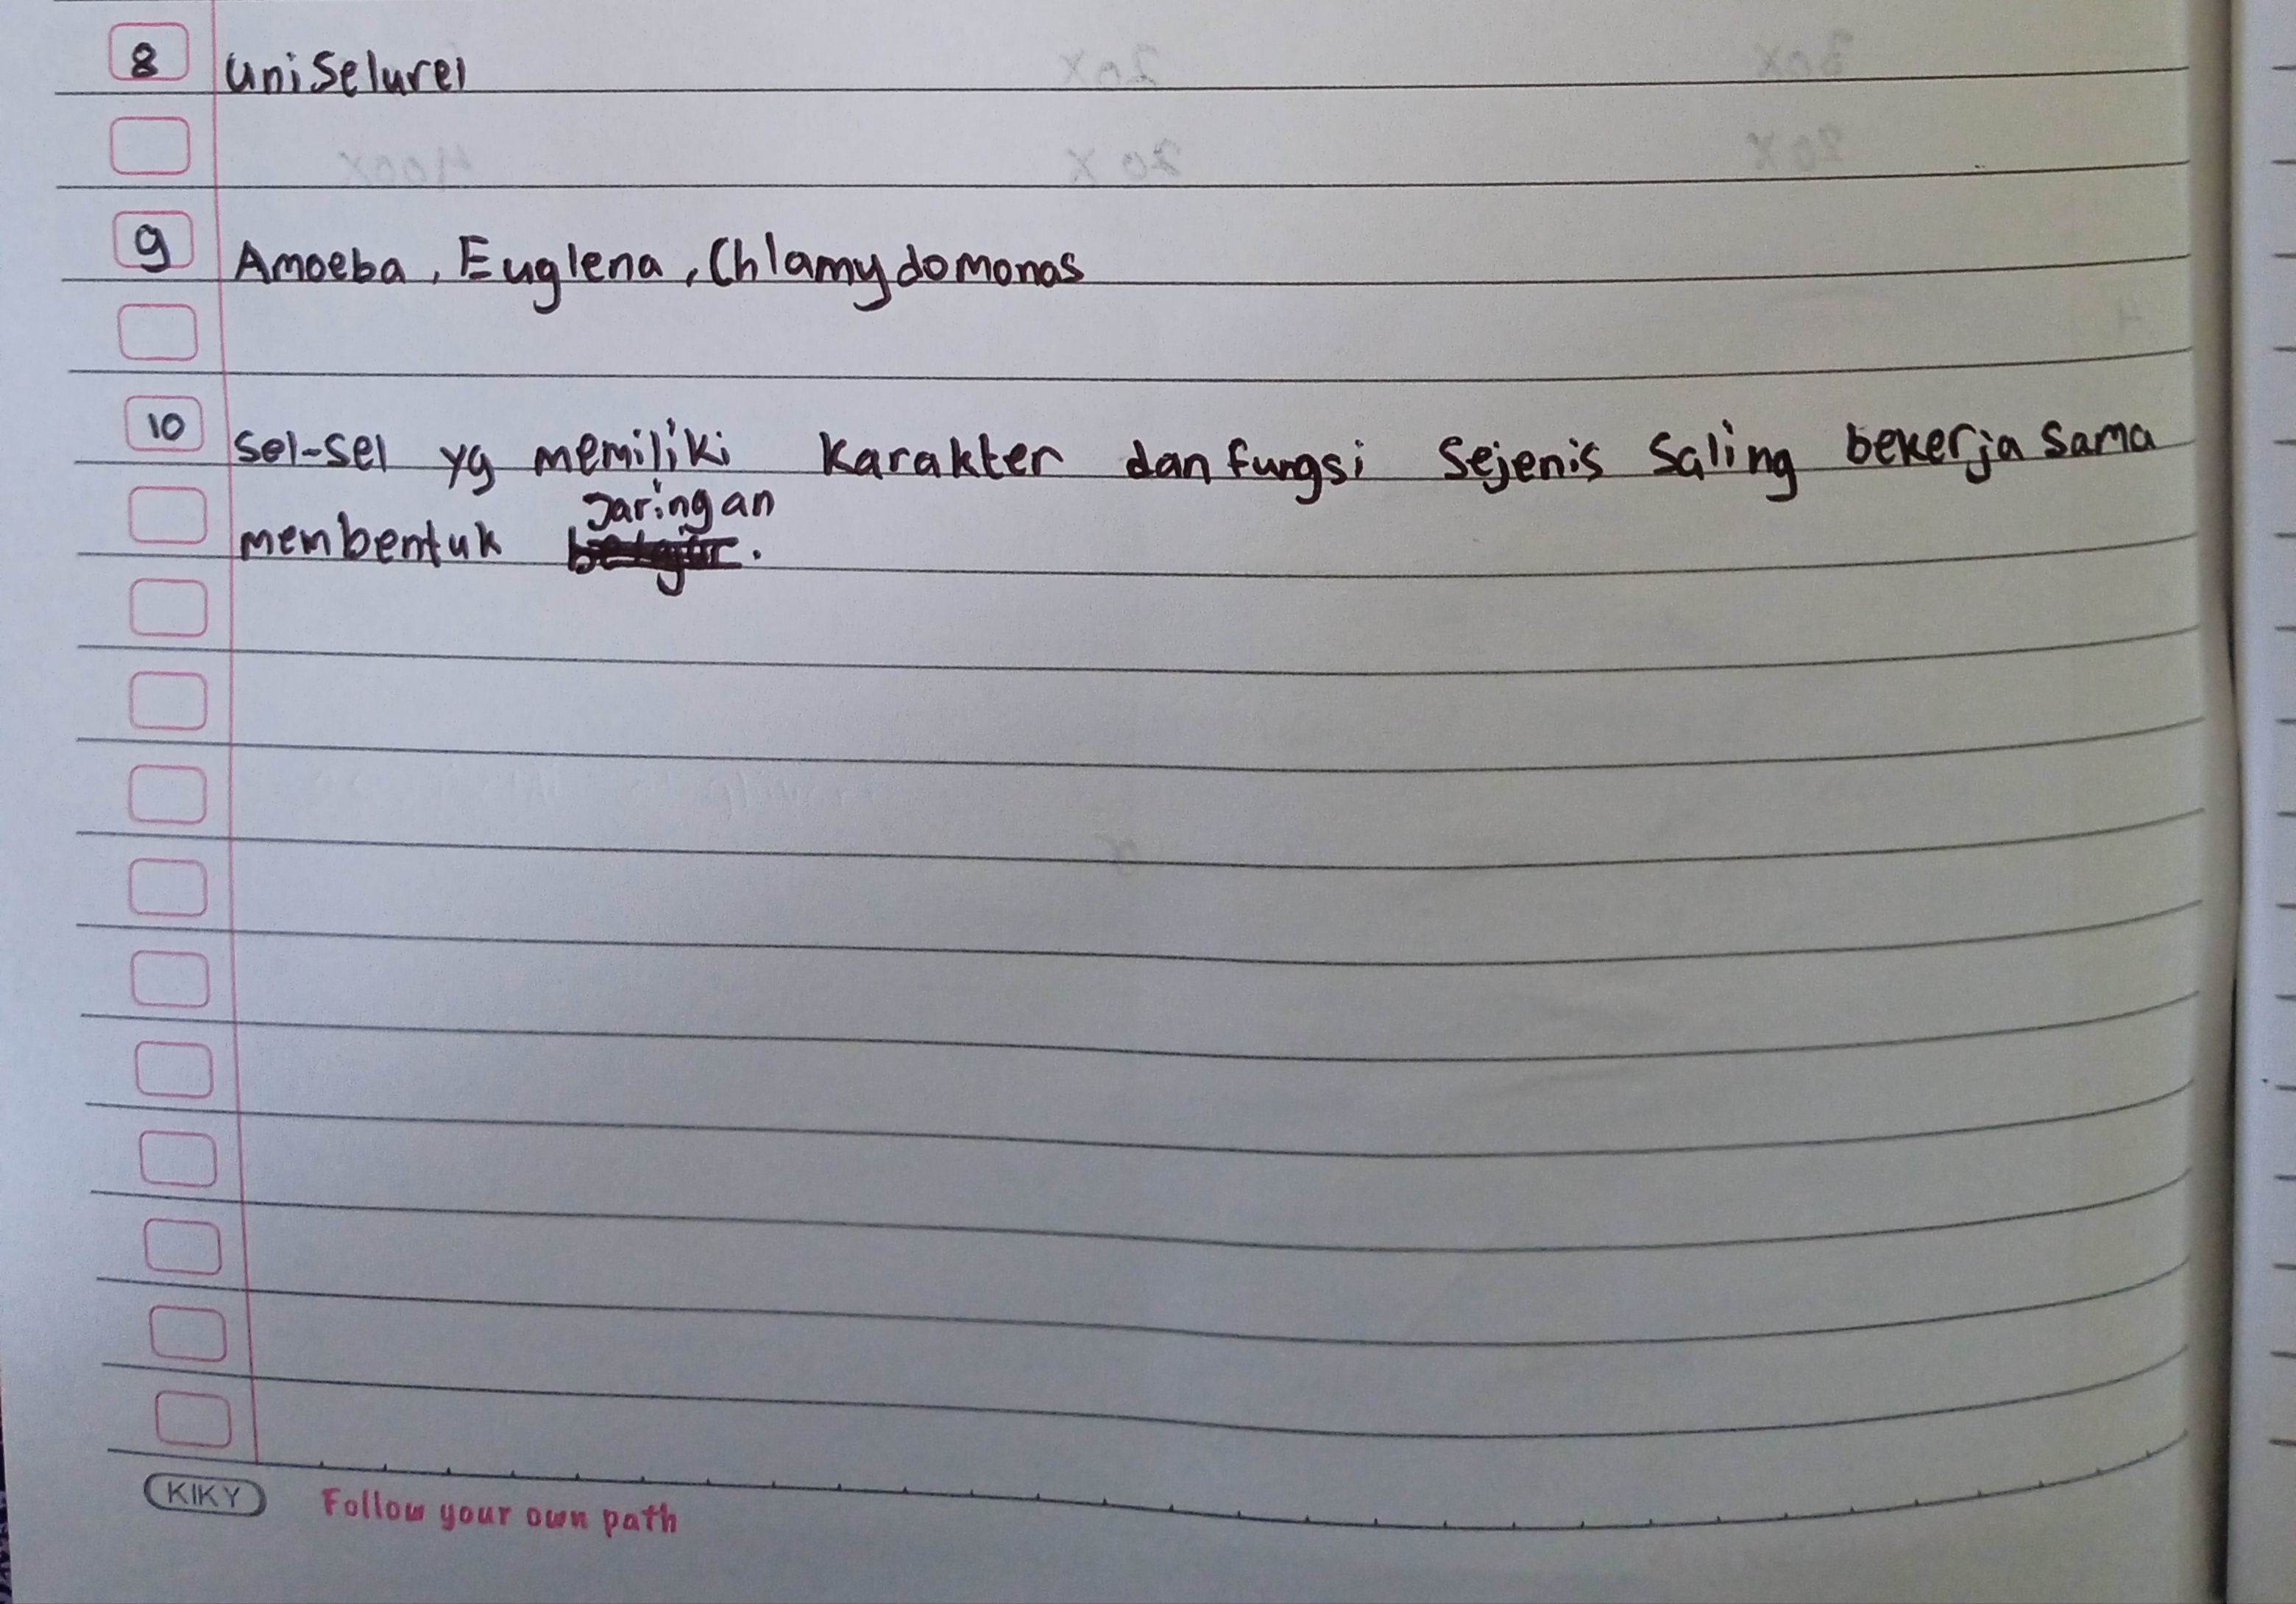 8 uniselurel
9 Amoeba, Euglena, Chlamydomonas
10 Sel-sel yg memiliki karakter dan fungsi sejenis saling bekerja sama
membentuk Jaringan.
KIKY Follow your own path